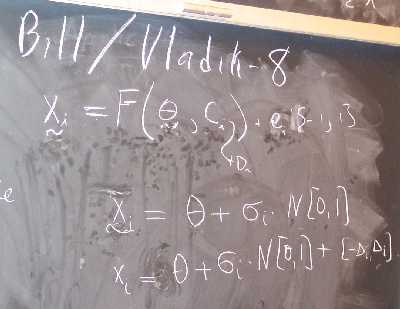 Bill/Vladik-8
X_i = F(θ, C_i) + e_i [-1, 1]
+D_i
X_i = θ + σ_i · N[0,1]
x_i = θ + σ_i · N[0,1] + [-Δ_i, Δ_i]